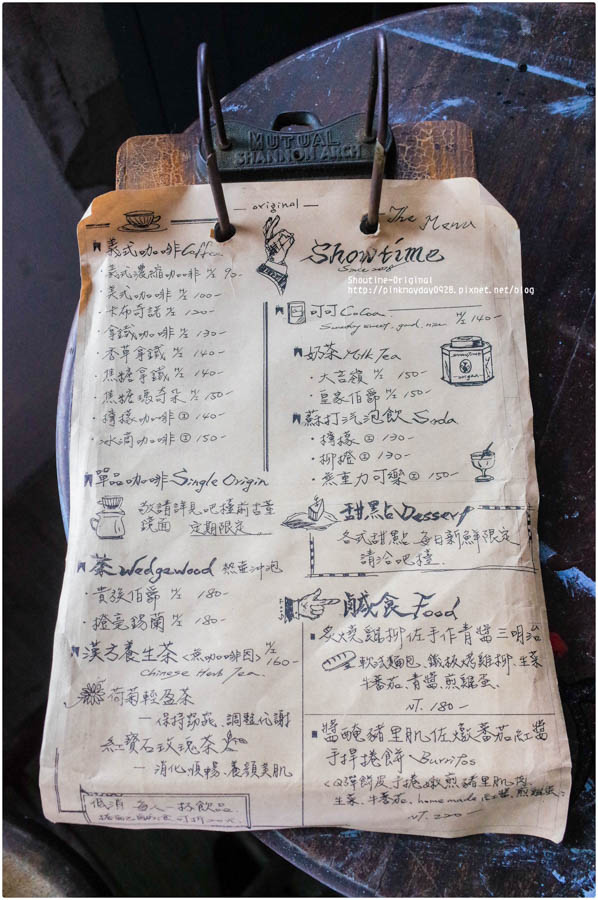 MUTUAL
SHANNON ARCH
original
The Menu
Showtime
Shoutine-Original
http://pinkmayday0928.pixnet.net/blog
義式咖啡 Coffee
·義式濃縮咖啡 H/I 90-
·美式咖啡 H/I 100-
·卡布奇諾 H/I 120-
·拿鐵咖啡 H/I 130-
·香草拿鐵 H/I 140-
·焦糖拿鐵 H/I 140-
·焦糖瑪奇朵 H/I 150-
·檸檬咖啡 I 140-
·冰滴咖啡 I 150-
單品咖啡 Single Origin
敬請詳見吧檯前古董
鏡面 定期限定
茶 Wedgewood 熱壺沖泡
·貴族伯爵 H/I 180-
·橙毫錫蘭 H/I 180-
漢方養生茶 <無咖啡因> H/I 160-
Chinese Herb Tea.
荷菊輕盈茶
—保持窈窕、調整代謝
紅寶石玫瑰茶
—消化順暢、養顏美肌
低消 每人一杯飲品
可可 Cocoa H/I 140-
奶茶 Milk Tea
·大吉嶺 H/I 150-
·皇家伯爵 H/I 150-
蘇打汽泡飲 Soda
·檸檬 I 130-
·柳橙 I 130-
·無重力可樂 I 150-
甜點 Dessert
各式甜點 每日新鮮限定
請洽吧檯.
鹹食 Food
炙燒雞柳佐手作青醬三明治
軟法麵包、鐵板烤雞柳、生菜
牛蕃茄、青醬、煎雞蛋.
NT. 180-
醬醃豬里肌佐燉蕃茄紅醬
手捍捲餅 Burritos
<Q彈餅皮手捲嫩煎豬里肌肉
生菜、牛蕃茄、home made
NT. 220-